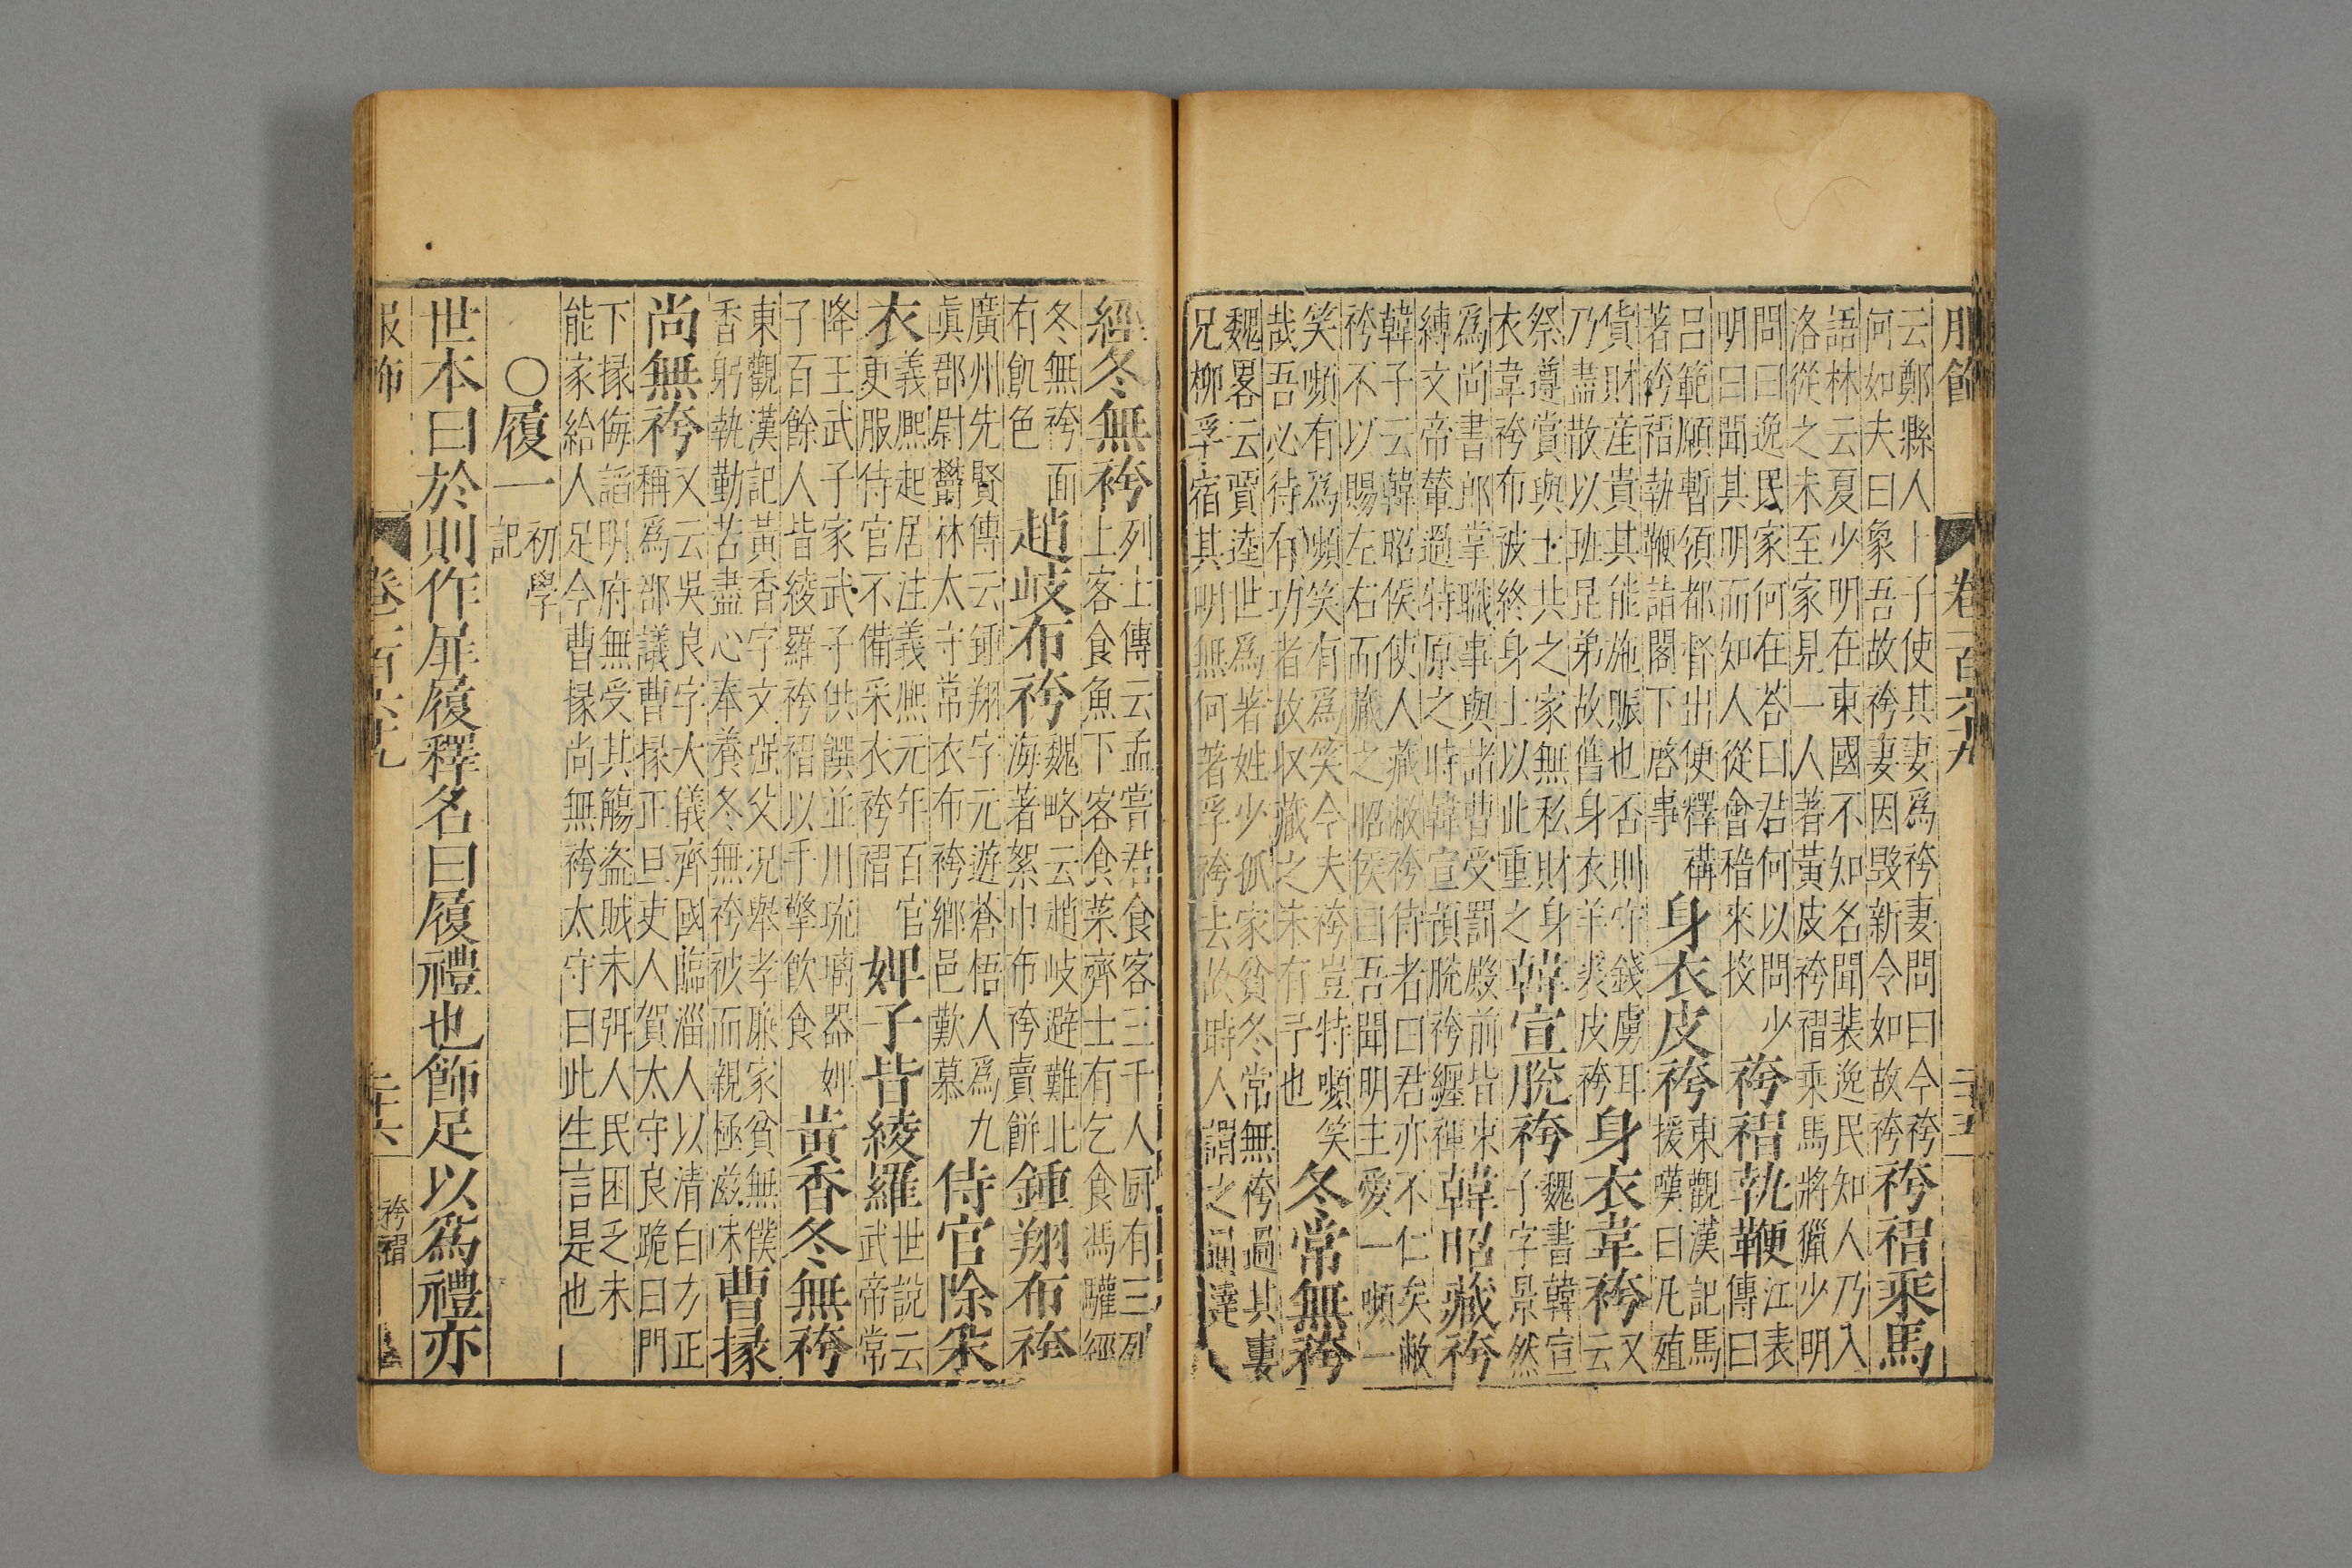 服飾 卷一百六九 二十五
云鄭縣人卜子使其妻爲袴妻問曰今袴
何如夫曰象吾故袴妻因毀新令如故袴袴褶乘馬
語林云夏少明在東國不知名聞裴逸民知人乃入
洛從之未至家見一人著黃皮袴褶乘馬將獵少明
問曰逸民家何在荅曰君何以問少
明曰聞其明而知人從會稽來投袴褶執鞭江表
傳曰
呂範願暫領都督出便釋褠
著袴褶執鞭詣閣下啓事身衣皮袴東觀漢記馬
援嘆曰凡殖
貨財産貴其能施賑也否則守錢虜耳
乃盡散以班昆弟故舊身衣羊裘皮袴身衣韋袴又
云
祭遵賞與士共之家無私財身
衣韋袴布被終身上以此重之韓宣脫袴魏書韓宣
子字景然
爲尚書郎掌職事與諸曹受罰殿前皆束
縛文帝輦過特原之時韓宣預脫袴纒褌韓昭藏袴
韓子云韓昭侯使人藏敝袴侍者曰君亦不仁矣敝
袴不以賜左右而藏之昭侯曰吾聞明主愛一嚬一
笑嚬有爲嚬笑有爲笑今夫袴豈特嚬笑
哉吾必待有功者故收藏之未有予也冬常無袴
魏畧云賈逵世爲著姓少孤家貧冬常無袴過其妻
兄柳孚宿其明無何著孚袴去故時人謂之通達
經冬無袴列士傳云孟嘗君食客三千人厨有三列
上客食魚下客食菜齊士有乞食馮驩經
冬無袴面
有飢色趙岐布袴魏略云趙岐避難北
海著絮巾布袴賣餅鍾翔布袴
廣州先賢傳云鍾翔字元遊蒼梧人爲九
眞郡尉欝林太守常衣布袴鄉邑歎慕侍官除朱
衣義熙起居注義熙元年百官
更服侍官不備采衣袴褶婢子皆綾羅世説云
武帝常
降王武子家武子供饌並川琉璃器婢
子百餘人皆綾羅袴褶以手擎飲食黃香冬無袴
東觀漢記黃香字文强父况舉孝廉家貧無僕
香躬執勤苦盡心奉養冬無袴被而親極滋味曹掾
尚無袴又云吳良字大儀齊國臨淄人以清白方正
稱爲部議曹掾正旦吏人賀太守良跪曰門
下掾侮諂明府無受其觴盗賊未弭人民困乏未
能家給人足今曹掾尚無袴太守曰此生言是也
○履一初學
記
世本曰於則作屝履釋名曰履禮也飾足以爲禮亦
服飾 卷一百六九 二十六 袴褶